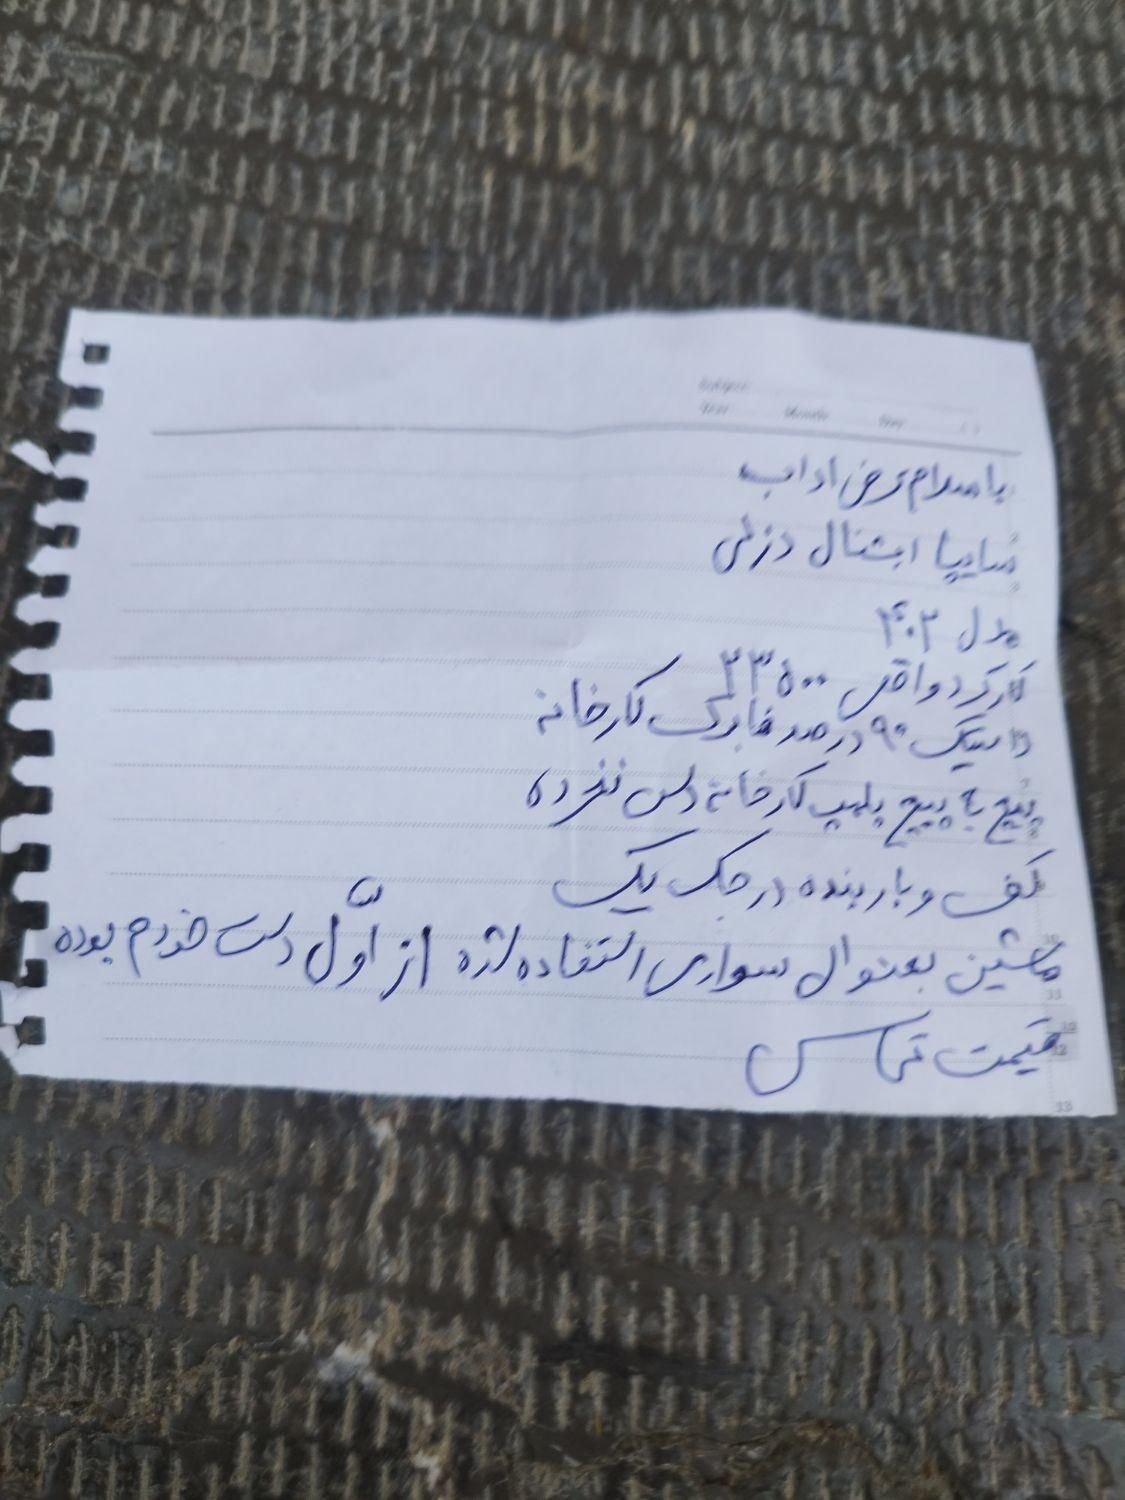 Subject:
Year Month Day ( )
باسلام عرض اداب
سایپا ایشتال دزلی
مدل ۴۰۲
کارکرد واقعی ۲۳۵۰۰
لاستیک ۹۰ درصد فابریک کارخانه
پیچ به پیچ پلمپ کارخانه دس نخرده
کف و باربنده در حک یک
ماشین بعنوال سواری استفاده شده از اوّل دست خودم بوده
قیمت تماس